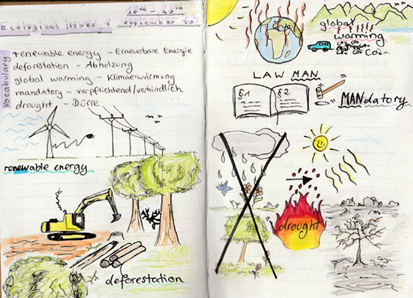 Ecological issues
September
Vocabulary
renewable energy - Erneuerbare Energie
deforestation - Abholzung
global warming - Klimaerwärmung
mandatory - verpflichtend/verbindlich
drought - Dürre
renewable energy
deforestation
global
warming
CO₂ CO₂
LAW MAN
§1 §2
MANdatory
drought